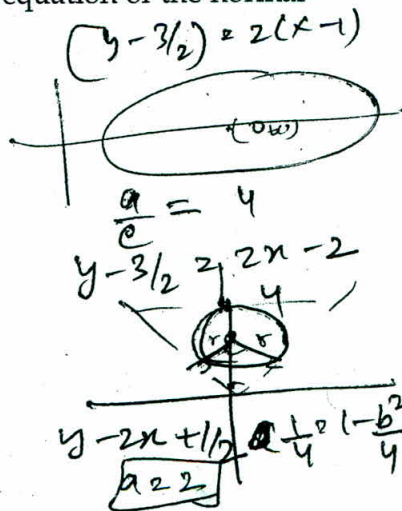 equation of the normal
(y - 3/2) = 2(x - 1)
(0,0)
a/e = 4
y - 3/2 = 2x - 2
4
r r
y - 2x + 1/2
1/4 = 1 - b²/4
a = 2